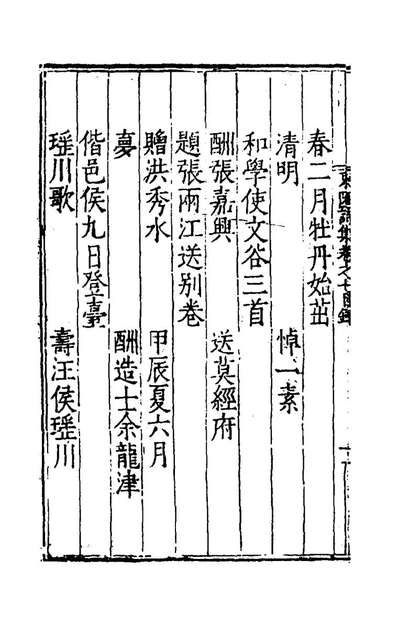 春二月牡丹始茁
清明　悼一素
和學使文谷三首
酬張嘉興　送莫經府
題張兩江送別卷
贈洪秀水　甲辰夏六月
夢　酬造士余龍津
偕邑侯九日登臺
瑶川歌　壽汪侯瑶川
詩集卷之七目錄